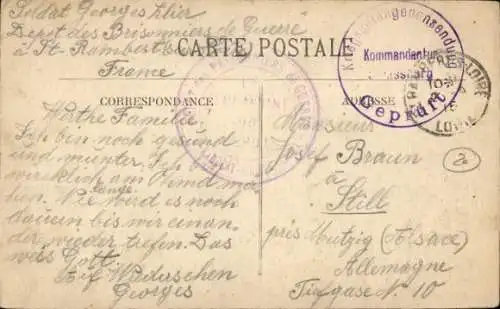 Soldat Georges Klier
Depot des Brisonniers de Guerre
à St. Rambert s
France
CARTE POSTALE
CORRESPONDANCE
ADRESSE
Kriegsgefangenensendung
Kommandantur
Geprüft
LOIRE
Wärthe Familie,
Ich bin noch gesund
und munter. Ich bin
wirklich am Ohmd ma-
hen. Wie lange wird es noch
dauern bis wir einan-
der wieder trefen. Das
weis Gott.
Auf Wiedersehen
Georges
Monsieur
Josef Braun
à
Still
près Mutzig (Alsace)
Allemagne
Tiefgase N. 10
20